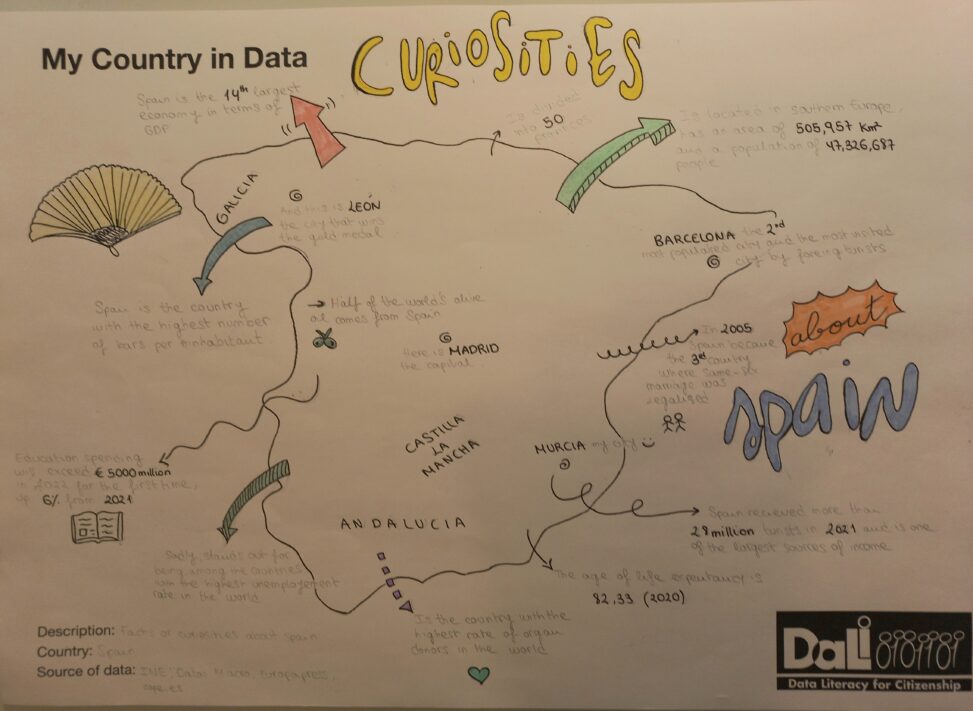 My Country in Data
CURIOSITIES
Spain is the 14th largest
economy in terms of
GDP
Is divided
into 50
provinces
Is located in southern Europe,
has an area of 505,957 Km²
and a population of 47,326,687
people
GALICIA
And this is LEÓN
the city that wins
the gold medal
BARCELONA the 2nd
most populated city and the most visited
city by foreing turists
Spain is the country
with the highest number
of bars per inhabitant
→ Half of the world's olive
oil comes from Spain
Here is MADRID
the capital
In 2005
Spain became
the 3rd country
where same-sex
marriage was
legalised
about
Spain
CASTILLA
LA
MANCHA
MURCIA my city
Education spending
will exceed € 5000 million
in 2022 for the first time,
up 6% from 2021
ANDALUCIA
Spain recieved more than
28 million turists in 2021 and is one
of the largest sources of income
Sadly, stands out for
being among the countries
with the highest unemployement
rate in the world
The age of life expentancy is
82,33 (2020)
Is the country with the
highest rate of organ
donors in the world
Description: Facts or curiosities about Spain
Country: Spain
Source of data: INE, Datos Macro, europapress,
cope.es
DaLi
Data Literacy for Citizenship